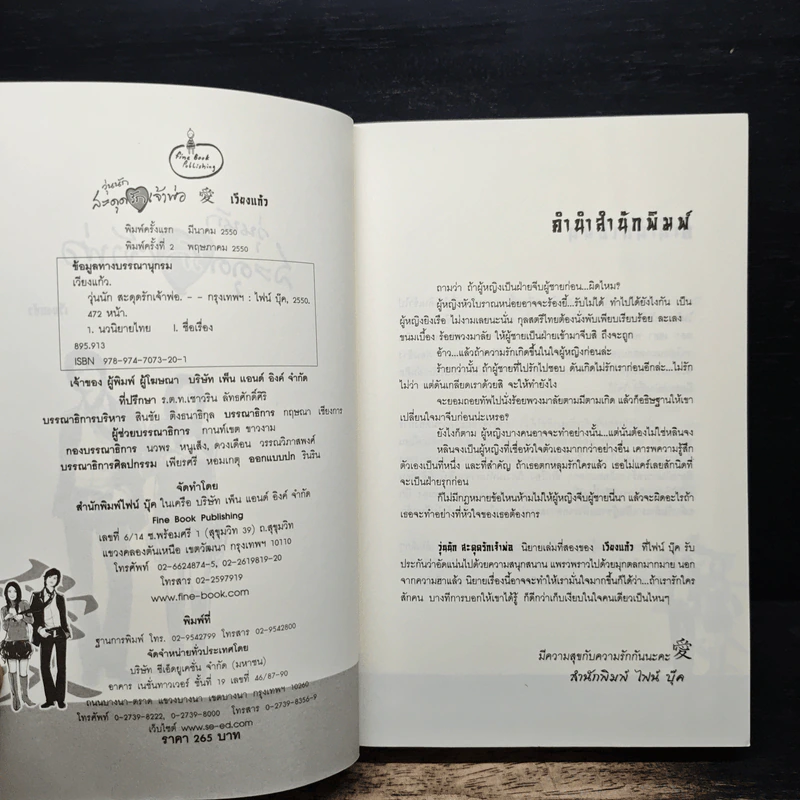 Fine Book
Publishing
วุ่นนัก
สะดุดรักเจ้าพ่อ 愛 เวียงแก้ว
พิมพ์ครั้งแรก มีนาคม 2550
พิมพ์ครั้งที่ 2 พฤษภาคม 2550
ข้อมูลทางบรรณานุกรม
เวียงแก้ว.
วุ่นนัก สะดุดรักเจ้าพ่อ. - - กรุงเทพฯ : ไฟน์ บุ๊ค, 2550.
472 หน้า.
1. นวนิยายไทย I. ชื่อเรื่อง
895.913
ISBN 978-974-7073-20-1
เจ้าของ ผู้พิมพ์ ผู้โฆษณา บริษัท เพ็น แอนด์ อิงค์ จำกัด
ที่ปรึกษา ร.ต.ท.เชาวริน ลัทธศักดิ์ศิริ
บรรณาธิการบริหาร สินชัย ติงธนาธิกุล บรรณาธิการ กฤษณา เชียงการ
ผู้ช่วยบรรณาธิการ กานท์เขต ขาวงาม
กองบรรณาธิการ นวพร หนูเส็ง, ดวงเดือน วรรณวิภาสพงศ์
บรรณาธิการศิลปกรรม เพียรศรี หอมเกตุ ออกแบบปก รินริน
จัดทำโดย
สำนักพิมพ์ไฟน์ บุ๊ค ในเครือ บริษัท เพ็น แอนด์ อิงค์ จำกัด
Fine Book Publishing
เลขที่ 6/14 ซ.พร้อมศรี 1 (สุขุมวิท 39) ถ.สุขุมวิท
แขวงคลองตันเหนือ เขตวัฒนา กรุงเทพฯ 10110
โทรศัพท์ 02-6624874-5, 02-2619819-20
โทรสาร 02-2597919
www.fine-book.com
พิมพ์ที่
ฐานการพิมพ์ โทร. 02-9542799 โทรสาร 02-9542800
จัดจำหน่ายทั่วประเทศโดย
บริษัท ซีเอ็ดยูเคชั่น จำกัด (มหาชน)
อาคาร เนชั่นทาวเวอร์ ชั้นที่ 19 เลขที่ 46/87-90
ถนนบางนา-ตราด แขวงบางนา เขตบางนา กรุงเทพฯ 10260
โทรศัพท์ 0-2739-8222, 0-2739-8000 โทรสาร 0-2739-8356-9
เว็บไซต์ www.se-ed.com
ราคา 265 บาท
คำนำสำนักพิมพ์
ถามว่า ถ้าผู้หญิงเป็นฝ่ายจีบผู้ชายก่อน...ผิดไหม?
ผู้หญิงหัวโบราณหน่อยอาจจะร้องยี้...รับไม่ได้ ทำไปได้ยังไงกัน เป็น
ผู้หญิงยิงเรือ ไม่งามเลยนะนั่น กุลสตรีไทยต้องนั่งพับเพียบเรียบร้อย ละเลง
ขนมเบื้อง ร้อยพวงมาลัย ให้ผู้ชายเป็นฝ่ายเข้ามาจีบสิ ถึงจะถูก
อ้าว...แล้วถ้าความรักเกิดขึ้นในใจผู้หญิงก่อนล่ะ
ร้ายกว่านั้น ถ้าผู้ชายที่ไปรักไปชอบ ดันเกิดไม่รักเราก่อนอีกล่ะ...ไม่รัก
ไม่ว่า แต่ดันเกลียดเราด้วยสิ จะให้ทำยังไง
จะยอมถอยทัพไปนั่งร้อยพวงมาลัยตามมีตามเกิด แล้วก็อธิษฐานให้เขา
เปลี่ยนใจมาจีบก่อนน่ะเหรอ?
ยังไงก็ตาม ผู้หญิงบางคนอาจจะทำอย่างนั้น...แต่นั่นต้องไม่ใช่หลินจง
หลินจงเป็นผู้หญิงที่เชื่อหัวใจตัวเองมากกว่าอย่างอื่น เคารพความรู้สึก
ตัวเองเป็นที่หนึ่ง และที่สำคัญ ถ้าเธอตกหลุมรักใครแล้ว เธอไม่แคร์เลยสักนิดที่
จะเป็นฝ่ายรุกก่อน
ก็ไม่มีกฎหมายข้อไหนห้ามไม่ให้ผู้หญิงจีบผู้ชายนี่นา แล้วจะผิดอะไรถ้า
เธอจะทำอย่างที่หัวใจของเธอต้องการ
วุ่นนัก สะดุดรักเจ้าพ่อ นิยายเล่มที่สองของ เวียงแก้ว ที่ไฟน์ บุ๊ค รับ
ประกันว่าอัดแน่นไปด้วยความสนุกสนาน แพรวพราวไปด้วยมุกตลกมากมาย นอก
จากความฮาแล้ว นิยายเรื่องนี้อาจจะทำให้เรามั่นใจมากขึ้นก็ได้ว่า...ถ้าเรารักใคร
สักคน บางทีการบอกให้เขาได้รู้ ก็ดีกว่าเก็บเงียบในใจคนเดียวเป็นไหนๆ
มีความสุขกับความรักกันนะคะ 愛
สำนักพิมพ์ ไฟน์ บุ๊ค